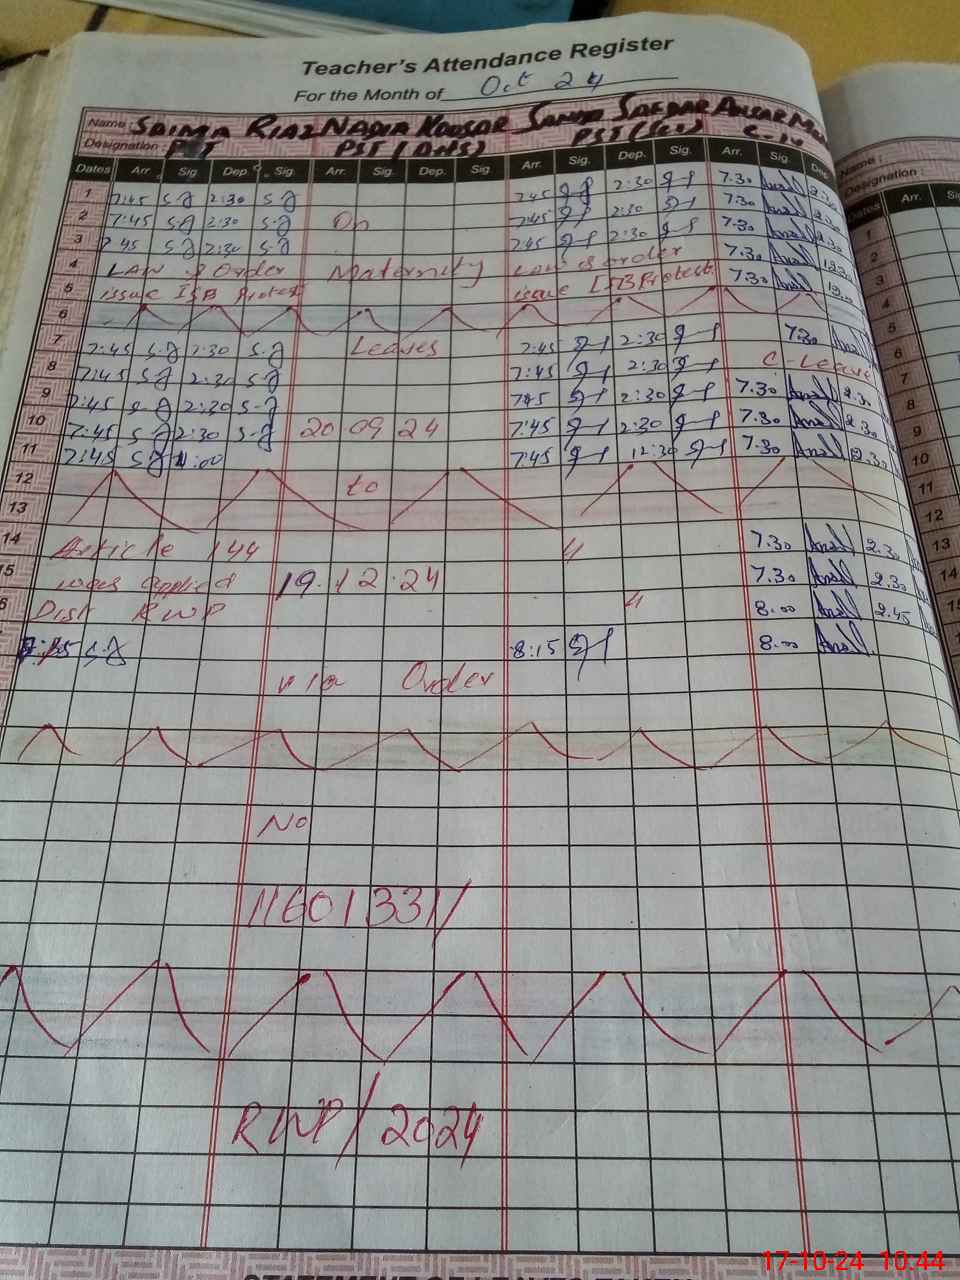 Teacher's Attendance Register
For the Month of Oct 24
Name : SAIMA RIAZ NADIA KOUSAR SANIA SAFDAR ANSAR
Designation : PST PST (
Dates Arr. Sig. Dep. Sig. Arr. Sig. Dep. Sig. Arr. Sig. Dep. Sig. Arr. Sig. Dep.
1 7:45 S.J 2:30 S.J 7:45 2:30 7.30 2.30
2 7:45 S.J 2:30 S.J On 7:45 2:30 7.30 2.30
3 7:45 S.J 2:30 S.J 7:45 2:30 7.30 2.30
4 LAW & Order Maternity Law & order 7.30 12.30
5 issue ISB Protest issue ISB Protest. 7.30
6
7 7:45 S.J 2:30 S.J Leaves 7:45 2:30 7.30
8 7:45 S.J 2:30 S.J 7:45 2:30 C-Leave
9 7:45 S.J 2:30 S.J 7:45 2:30 7.30 2.30
10 7:45 S.J 2:30 S.J 20 09 24 7:45 2:30 7.30 2.30
11 7:45 S.J 7:45 12:30 7.30 12.30
12 to
13
14 Article 144 11 7.30 2.30
15 was applied 19.12.24 7.30 2.30
6 Dist RWP 11 8.00 2.45
S.J 8:15 8.00
via Order
No
11601331/
RWP/2024
Name :
Designation :
Dates Arr.
1
2
3
4
5
6
7
8
9
10
11
12
13
14
15
17-10-24 10:44